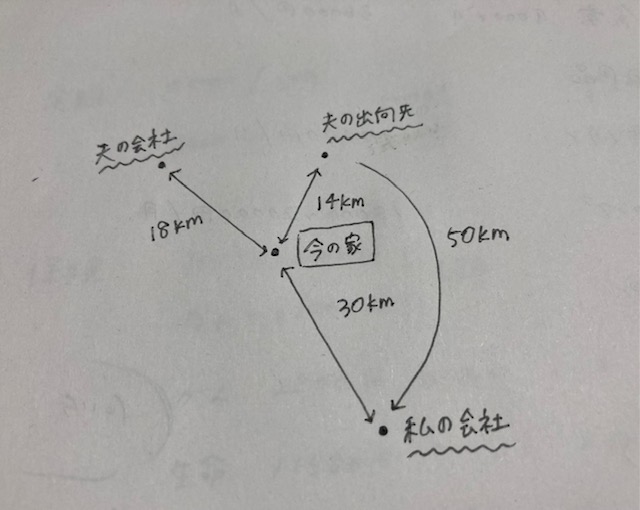 夫の出向先
夫の会社
14km
18km
今の家
50km
30km
私の会社